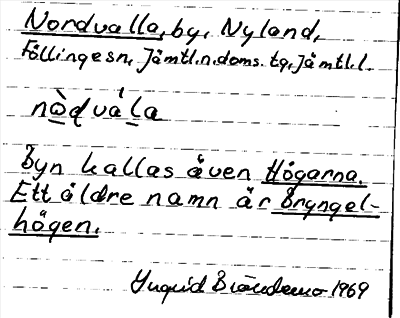 Nordvalla, by, Nyland,
Föllinge sn, Jämtl.n.doms. tg, Jämtl. l.
nò̲d̲vál̲a
Byn kallas även Högarna.
Ett äldre namn är Bryngel-
högen.
Yngrid Brändemo 1969